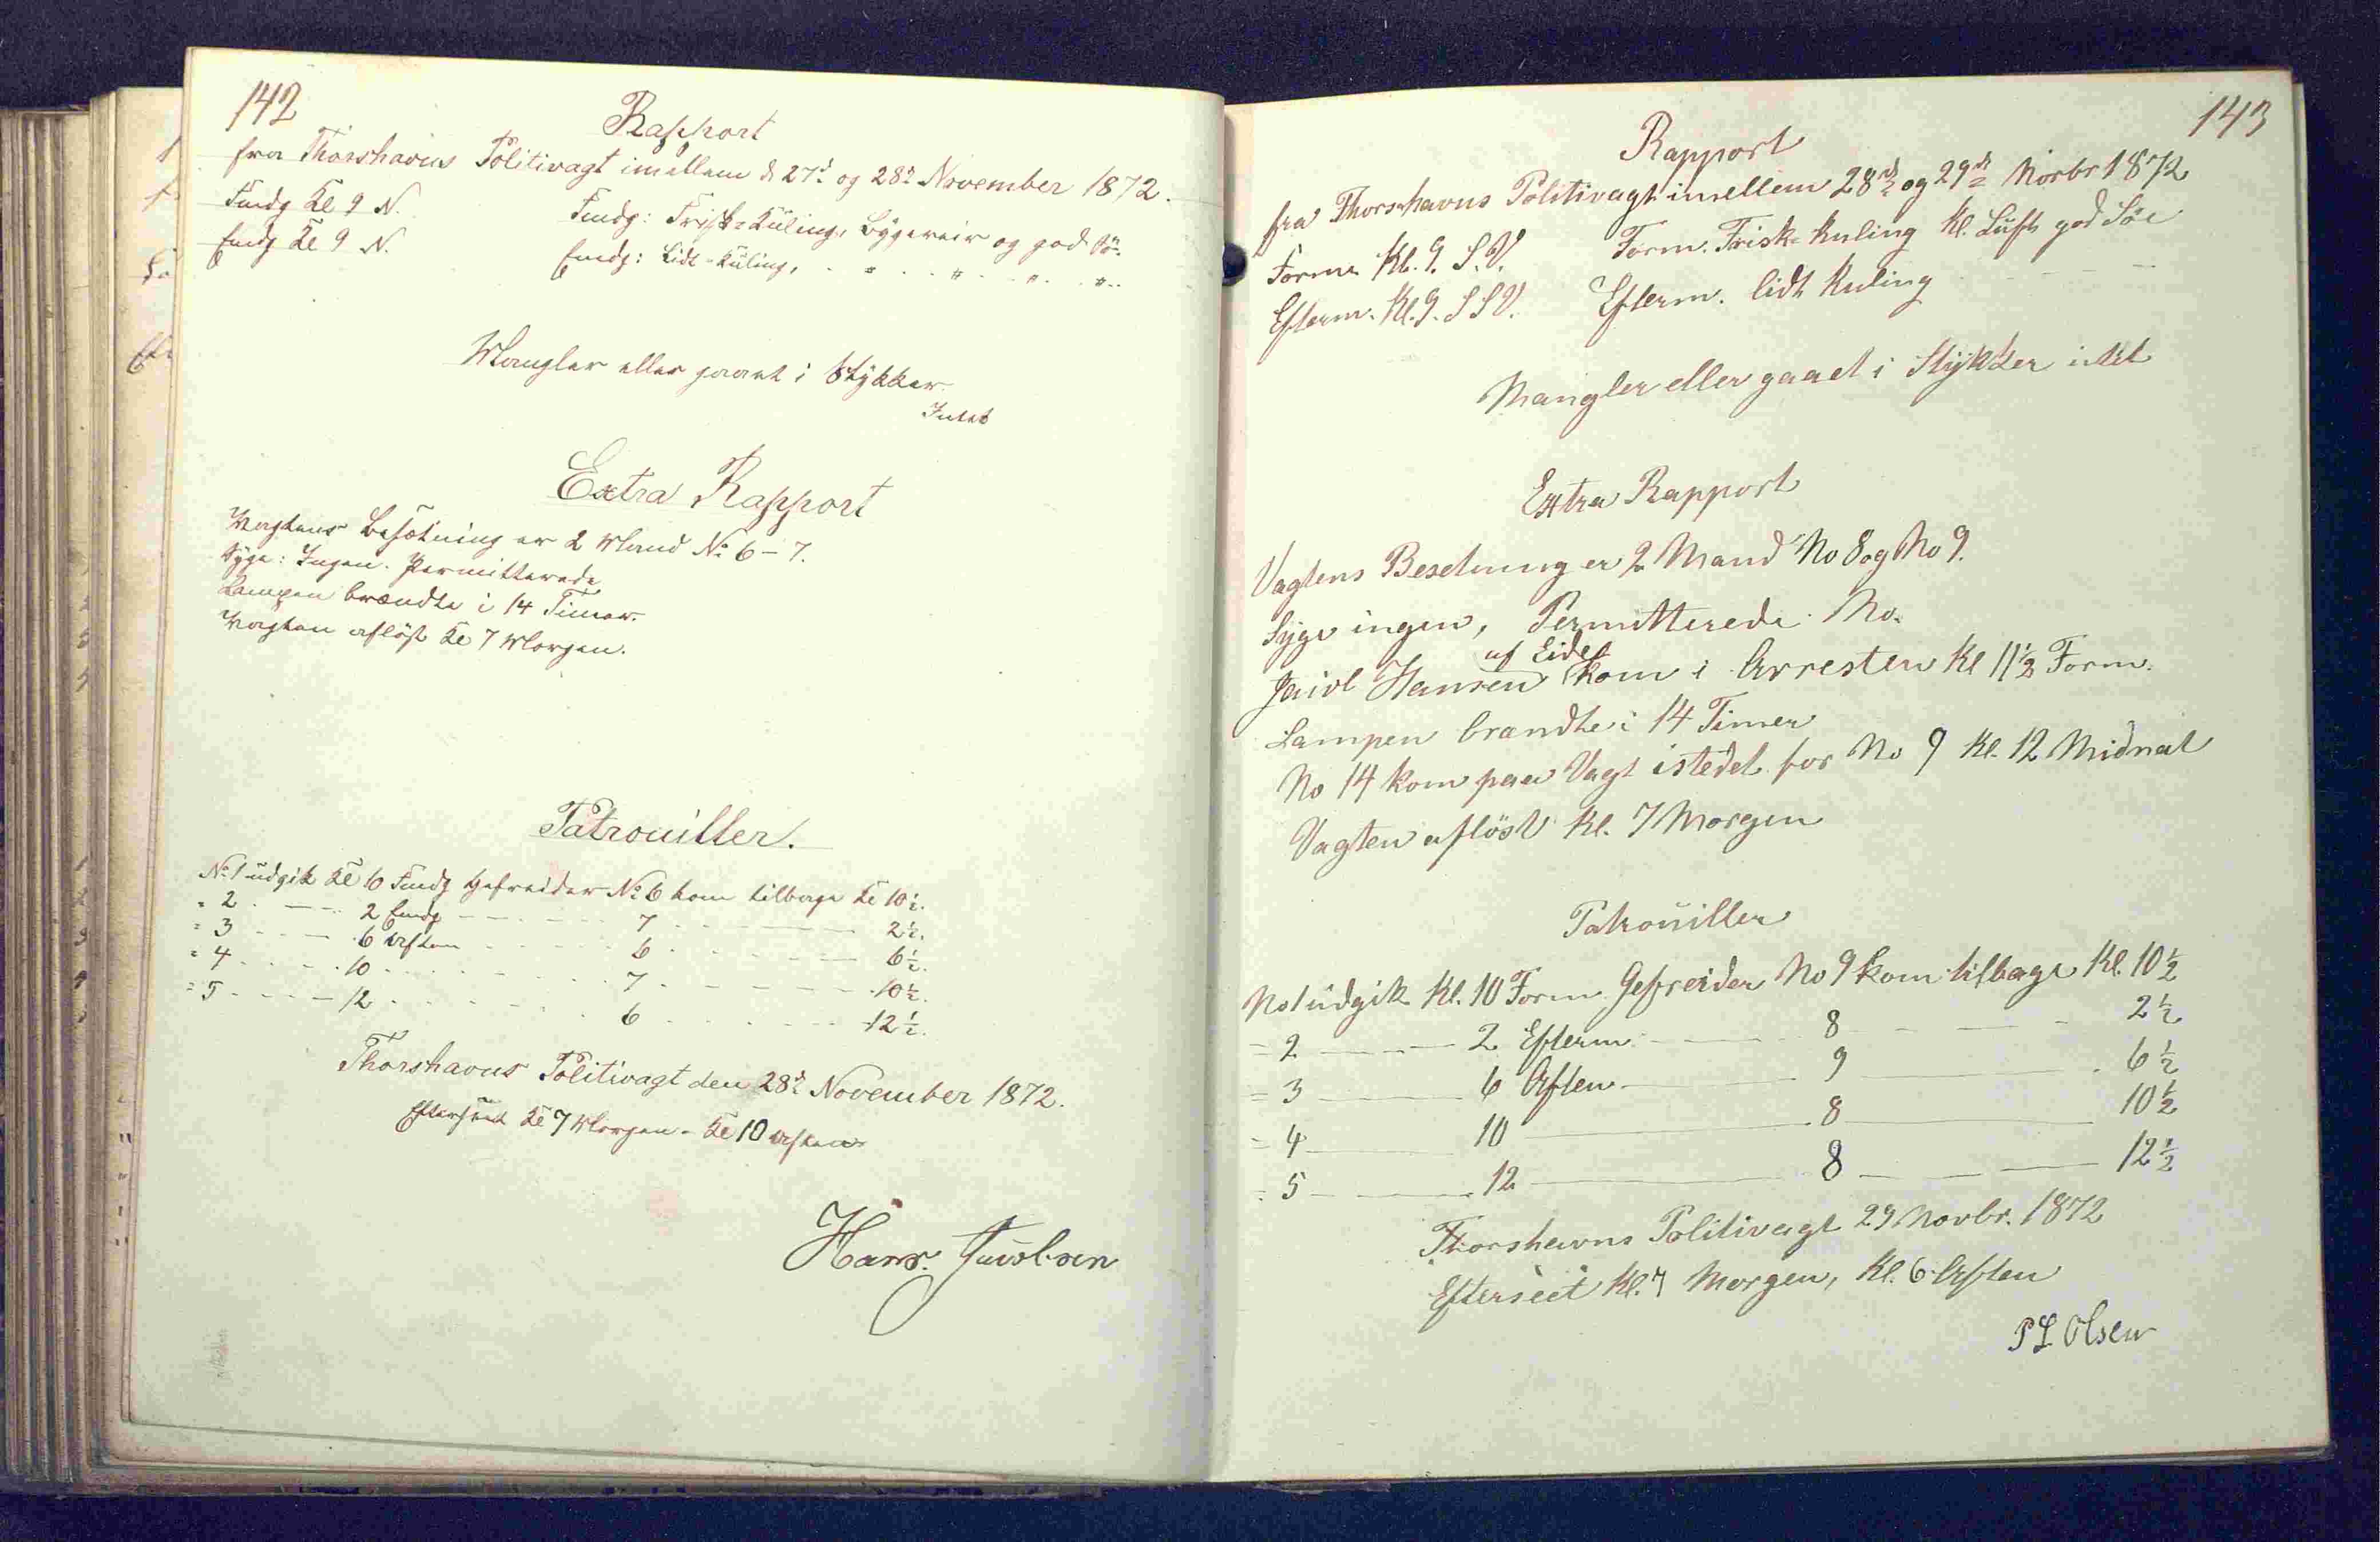 142
Rapport
fra Thorshavns Politivagt imellem d. 27de og 28de November 1872.
Fmdg Kl 9 N. Fmdg: Frisk-Küling, Bygeveir og god Sö.
Emdg Kl 9 N. Emdg: Lidt-Küling, " " " "
Mangler eller gaaet i Stykker
Intet
Extra Rapport
Vagtens Besætning er 2 Mand No 6 - 7.
Syge: Ingen. Permitterede
Lampen brændte i 14 Timer.
Vagten aflöst Kl 7 Morgen.
Patrouiller.
No 1 udgik Kl 10 Fmdg Gefreider No 6 kom tilbage Kl 10½.
" 2 - - 2 Emdg - - 7 - - 2½.
" 3 - - 6 Aften - - 6 - - 6½.
" 4 - - 10 - - 7 - - 10½.
" 5 - - 12 - - 6 - - 12½.
Thorshavns Politivagt den 28de November 1872.
Efterseet Kl 7 Morgen - Kl 10 Aften
Hans Jacobsen
143
Rapport
fra Thorshavns Politivagt imellem 28de og 29de Novbr 1872
Form. Kl. 9. S.V. Form. Frisk-Kuling Kl. Luft god Söe
Efterm. Kl. 9. S S V. Efterm. lidt Kuling - - -
Mangler eller gaaet i Stykker intet
Extra Rapport
Vagtens Besetning er 2 Mand No 8 og No 9.
Syge ingen, Permitterede No.
af Eide
Hansen kom i Arresten Kl 11½ Form.
Lampen brandte i 14 Timer
No 14 kom paa Vagt istedet for No 9 Kl. 12 Midnat
Vagten aflöst Kl. 7 Morgen
Patrouiller
No 1 udgik Kl. 10 Form. Gefreider No 9 kom tilbage Kl. 10½
= 2 - - 2 Efterm. - - 8 - - 2½
= 3 - - 6 Aften - - 9 - - 6½
= 4 - - 10 - - 8 - - 10½
= 5 - - 12 - - 8 - - 12½
Thorshavns Politivagt 29 Novbr. 1872
Efterseet Kl. 7 Morgen, Kl. 6 Aften
P L Olsen